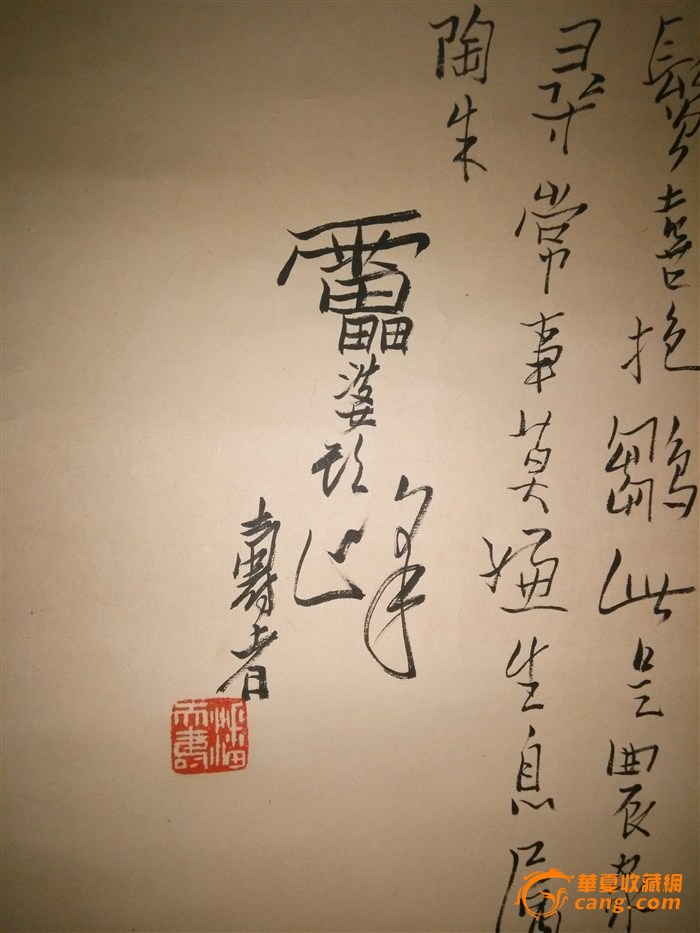 喜抱鶵此是農家
尋常事莫嫌生息屬
陶朱
靁婆頭峰
壽者
潘天壽
華夏收藏網
cang.com